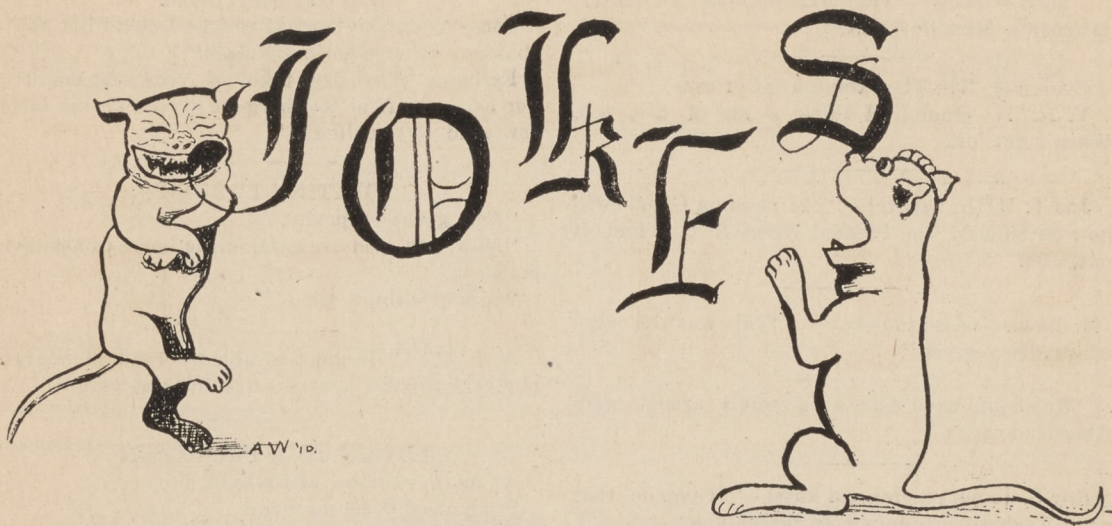 JOKES
AW '10.